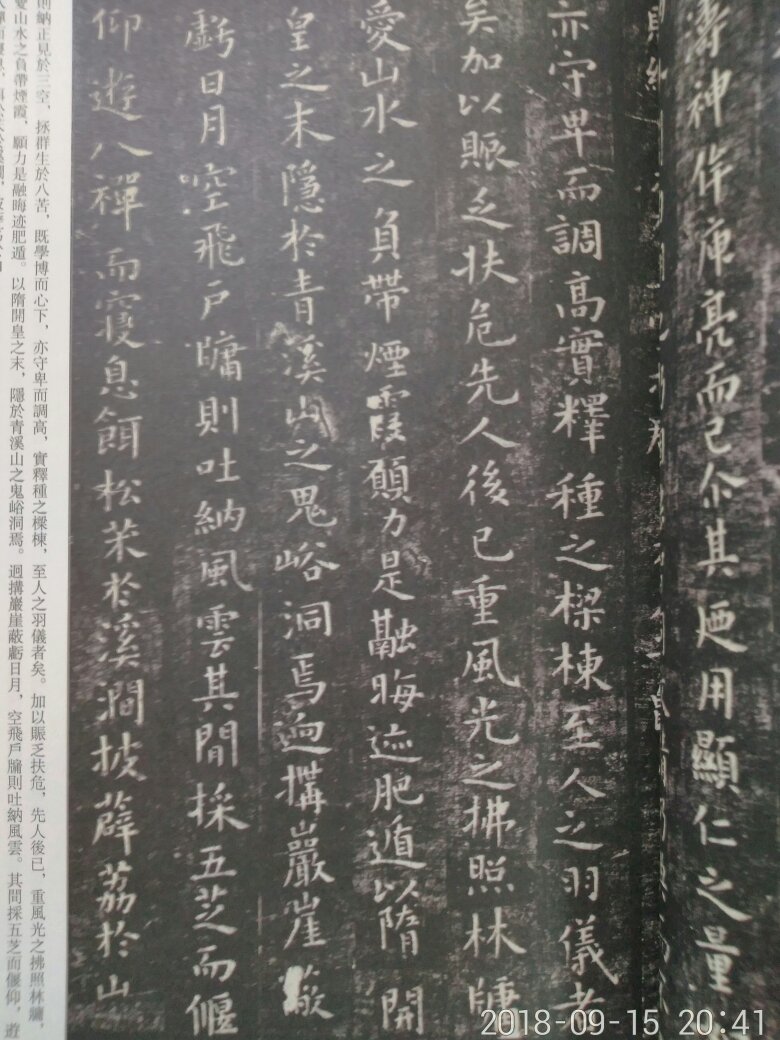 濤神作庫亮而已尒其迺用顯仁之量
亦守卑而調高實釋種之樑棟至人之羽儀者
矣加以賑乏扶危先人後已重風光之拂照林牗
愛山水之負帶煙霞願力是融晦迹肥遁以隋開
皇之末隱於青溪山之鬼峪洞焉迥搆巖崖蔽
虧日月空飛戶牖則吐納風雲其間採五芝而偃
仰遊八禪而寢息餌松茱於溪澗披薜荔於山
則納正見於三空，拯群生於八苦，既學博而心下，亦守卑而調高，實釋種之樑棟，至人之羽儀者矣。加以賑乏扶危，先人後已，重風光之拂照林牖，
愛山水之負帶煙霞，願力是融晦迹肥遁。以隋開皇之末，隱於青溪山之鬼峪洞焉。迥搆巖崖蔽虧日月，空飛戶牖則吐納風雲。其間採五芝而偃仰，遊
2018-09-15 20:41